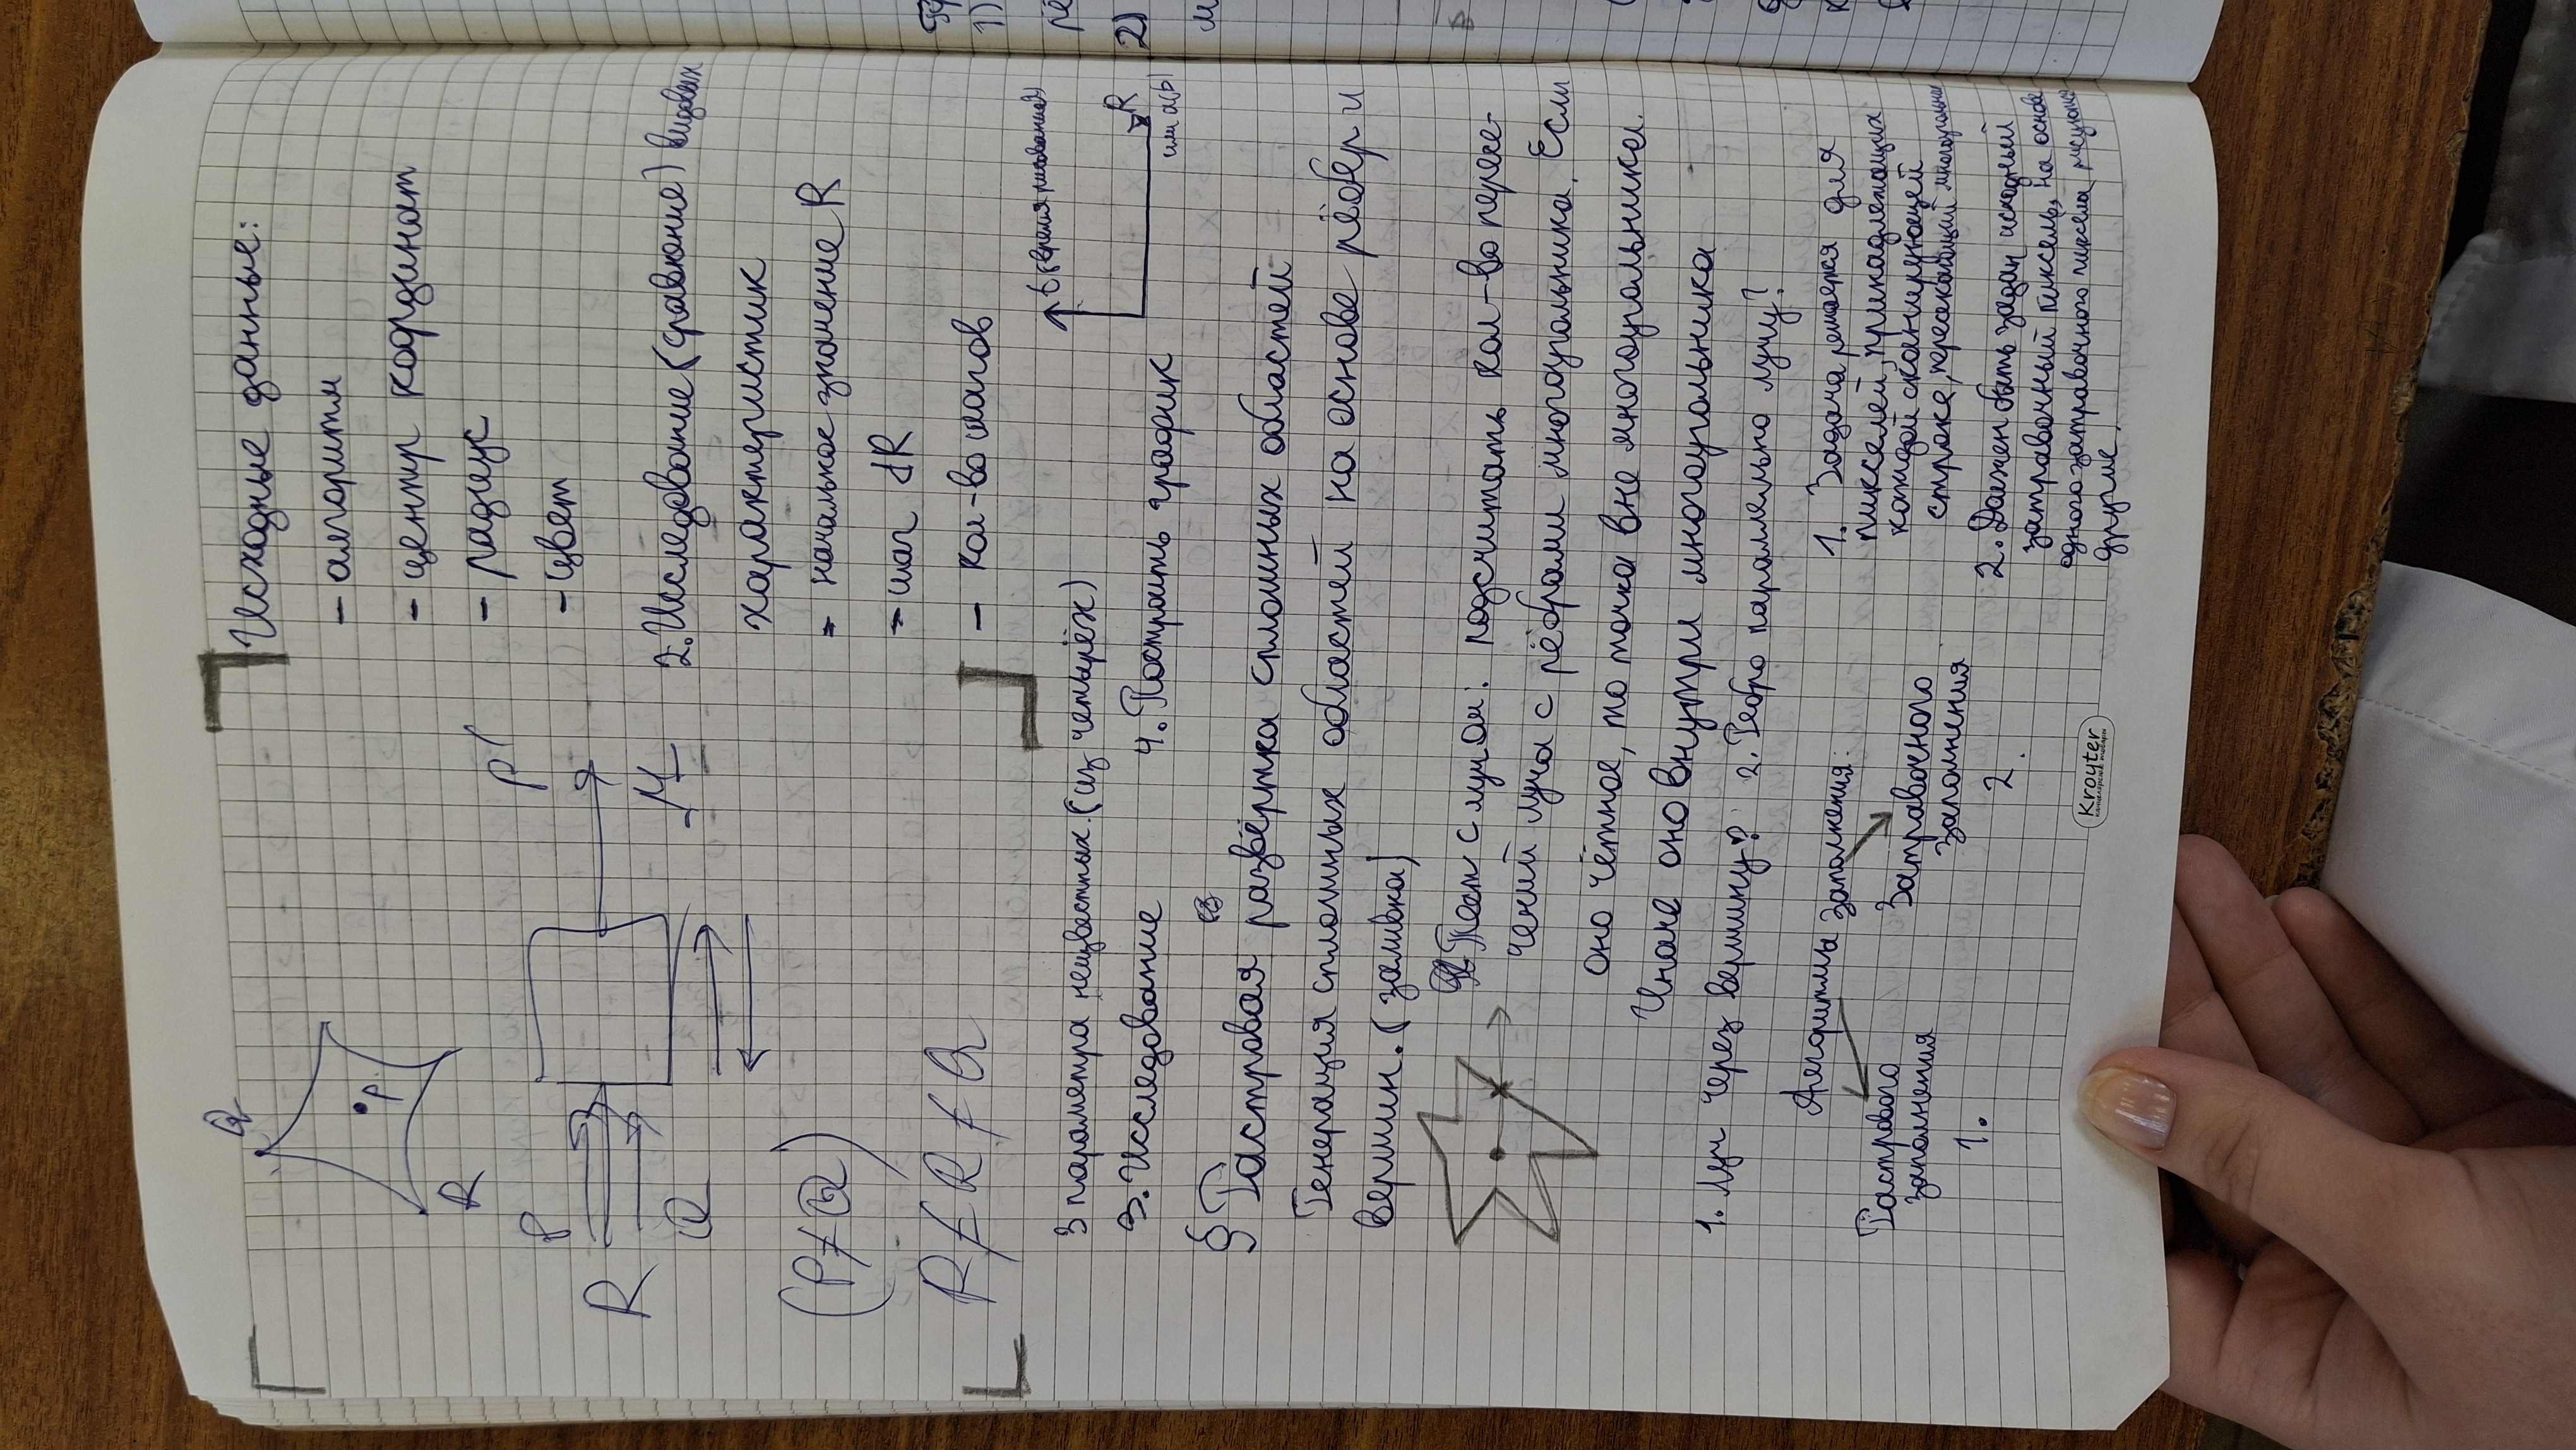 Q
P
R
Исходные данные:
- алгоритм
- центр координат
- радиус
- цвет
P
P'
R
M
Q
(P≠Q)
P≠R≠Q
2. Исследование (сравнение) видовых
характеристик
- начальное значение R
- шаг dR
- кол-во шагов
3 параметра неизвестных. (из четырёх)
t (время рисования)
R
или a(b)
3. Исследование
4. Построить график
§ Растровая развёртка сплошных областей
Генерация сплошных областей на основе рёбер и
вершин. (заливка)
Тест с лучом: подсчитать кол-во пересе-
чений луча с рёбрами многоугольника. Если
оно чётное, то точка вне многоугольника.
Иначе оно внутри многоугольника
1. Луч через вершину? 2. Ребро параллельно лучу?
Алгоритмы заполнения:
Растрового
заполнения
1.
Затравочного
заполнения
2.
1. Задача решается для
пикселей, принадлежащих
каждой сканирующей
строке, пересекающий
2. Должен быть задан исходный
затравочный пиксель, на основе
одного затравочного пиксела рисуются
другие.
Kroyter
канцелярские товары
1)
2)